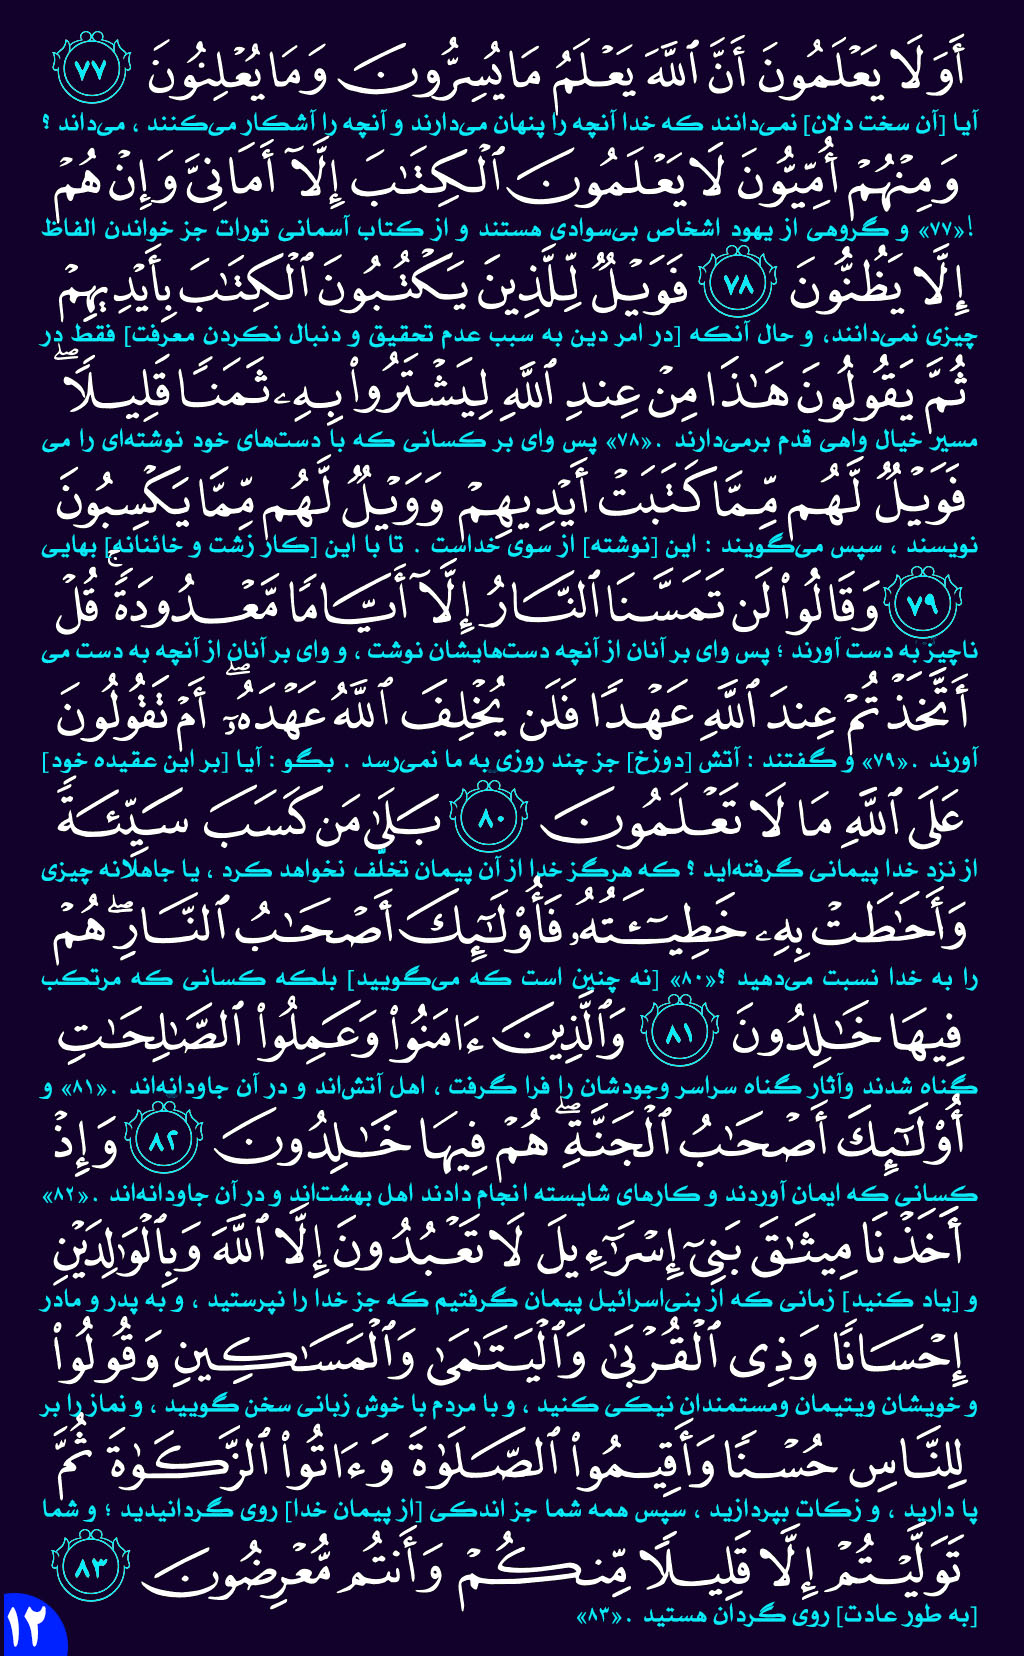 أَوَلَا يَعْلَمُونَ أَنَّ ٱللَّهَ يَعْلَمُ مَا يُسِرُّونَ وَمَا يُعْلِنُونَ ٧٧
آیا [آن سخت دلان] نمی‌دانند که خدا آنچه را پنهان می‌دارند و آنچه را آشکار می‌کنند ، می‌داند ؟
وَمِنْهُمْ أُمِّيُّونَ لَا يَعْلَمُونَ ٱلْكِتَٰبَ إِلَّآ أَمَانِىَّ وَإِنْ هُمْ
!«۷۷» و گروهی از یهود اشخاص بی‌سوادی هستند و از کتاب آسمانی تورات جز خواندن الفاظ
إِلَّا يَظُنُّونَ ٧٨ فَوَيْلٌ لِّلَّذِينَ يَكْتُبُونَ ٱلْكِتَٰبَ بِأَيْدِيهِمْ
چیزی نمی‌دانند، و حال آنکه [در امر دین به سبب عدم تحقیق و دنبال نکردن معرفت] فقط در
ثُمَّ يَقُولُونَ هَٰذَا مِنْ عِندِ ٱللَّهِ لِيَشْتَرُوا۟ بِهِۦ ثَمَنًا قَلِيلًا ۖ
مسیر خیال واهی قدم برمی‌دارند .«۷۸» پس وای بر کسانی که با دست‌های خود نوشته‌ای را می
فَوَيْلٌ لَّهُم مِّمَّا كَتَبَتْ أَيْدِيهِمْ وَوَيْلٌ لَّهُم مِّمَّا يَكْسِبُونَ
نویسند ، سپس می‌گویند : این [نوشته] از سوی خداست . تا با این [کار زشت و خائنانه] بهایی
٧٩ وَقَالُوا۟ لَن تَمَسَّنَا ٱلنَّارُ إِلَّآ أَيَّامًا مَّعْدُودَةً ۚ قُلْ
ناچیز به دست آورند ؛ پس وای بر آنان از آنچه دست‌هایشان نوشت ، و وای بر آنان از آنچه به دست می
أَتَّخَذْتُمْ عِندَ ٱللَّهِ عَهْدًا فَلَن يُخْلِفَ ٱللَّهُ عَهْدَهُۥٓ ۖ أَمْ تَقُولُونَ
آورند .«۷۹» و گفتند : آتش [دوزخ] جز چند روزی به ما نمی‌رسد . بگو : آیا [بر این عقیده خود]
عَلَى ٱللَّهِ مَا لَا تَعْلَمُونَ ٨٠ بَلَىٰ مَن كَسَبَ سَيِّئَةً
از نزد خدا پیمانی گرفته‌اید ؟ که هرگز خدا از آن پیمان تخلّف نخواهد کرد ، یا جاهلانه چیزی
وَأَحَٰطَتْ بِهِۦ خَطِيٓـَٔتُهُۥ فَأُو۟لَٰٓئِكَ أَصْحَٰبُ ٱلنَّارِ ۖ هُمْ
را به خدا نسبت می‌دهید ؟«۸۰» [نه چنین است که می‌گویید] بلکه کسانی که مرتکب
فِيهَا خَٰلِدُونَ ٨١ وَٱلَّذِينَ ءَامَنُوا۟ وَعَمِلُوا۟ ٱلصَّٰلِحَٰتِ
گناه شدند وآثار گناه سراسر وجودشان را فرا گرفت ، اهل آتش‌اند و در آن جاودانه‌اند .«۸۱» و
أُو۟لَٰٓئِكَ أَصْحَٰبُ ٱلْجَنَّةِ ۖ هُمْ فِيهَا خَٰلِدُونَ ٨٢ وَإِذْ
کسانی که ایمان آوردند و کارهای شایسته انجام دادند اهل بهشت‌اند و در آن جاودانه‌اند .«۸۲»
أَخَذْنَا مِيثَٰقَ بَنِىٓ إِسْرَٰٓءِيلَ لَا تَعْبُدُونَ إِلَّا ٱللَّهَ وَبِٱلْوَٰلِدَيْنِ
و [یاد کنید] زمانی که از بنی‌اسرائیل پیمان گرفتیم که جز خدا را نپرستید ، و به پدر و مادر
إِحْسَانًا وَذِى ٱلْقُرْبَىٰ وَٱلْيَتَٰمَىٰ وَٱلْمَسَٰكِينِ وَقُولُوا۟
و خویشان ویتیمان ومستمندان نیکی کنید ، و با مردم با خوش زبانی سخن گویید ، و نماز را بر
لِلنَّاسِ حُسْنًا وَأَقِيمُوا۟ ٱلصَّلَوٰةَ وَءَاتُوا۟ ٱلزَّكَوٰةَ ثُمَّ
پا دارید ، و زکات بپردازید ، سپس همه شما جز اندکی [از پیمان خدا] روی گردانیدید ؛ و شما
تَوَلَّيْتُمْ إِلَّا قَلِيلًا مِّنكُمْ وَأَنتُم مُّعْرِضُونَ ٨٣
[به طور عادت] روی گردان هستید .«۸۳»
۱۲